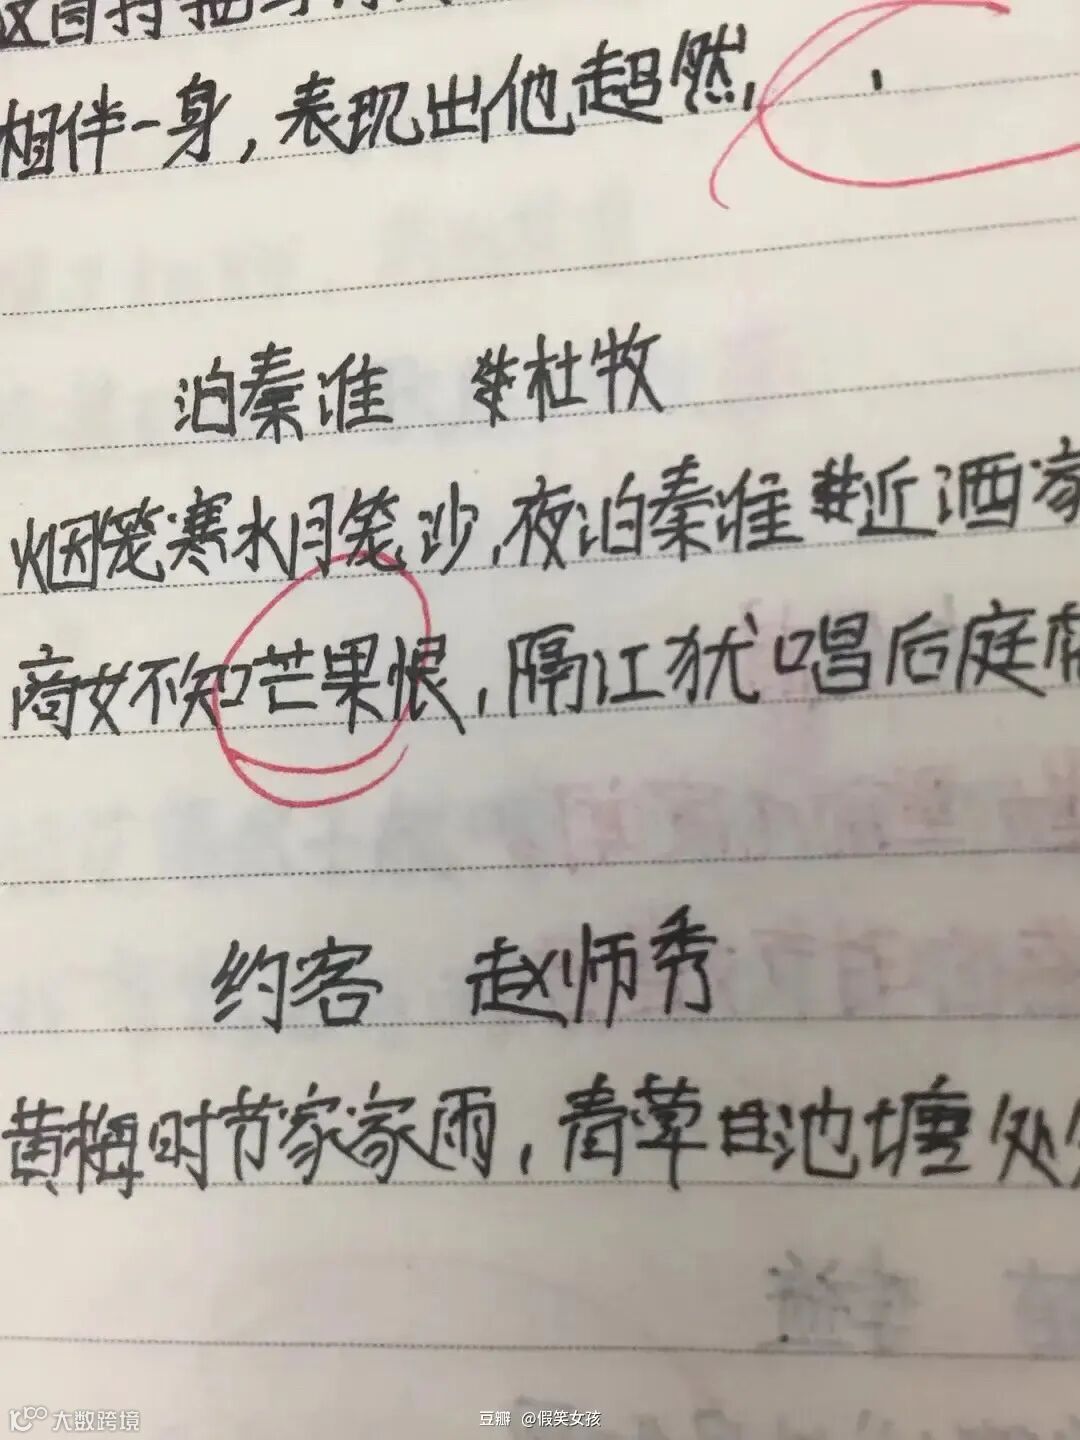 这首
相伴一身，表现出他超然，
泊秦淮 杜牧
烟笼寒水月笼沙，夜泊秦淮近酒家
商女不知芒果恨，隔江犹唱后庭
约客 赵师秀
黄梅时节家家雨，青草池塘处
大数跨境
豆瓣 @假笑女孩